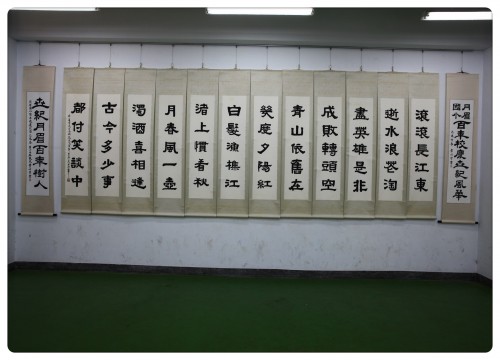 月眉國小百年校慶世紀風華
滾滾長江東
逝水浪花淘
盡英雄是非
成敗轉頭空
青山依舊在
幾度夕陽紅
白髮漁樵江
渚上慣看秋
月春風一壺
濁酒喜相逢
古今多少事
都付笑談中
世紀月眉百年樹人